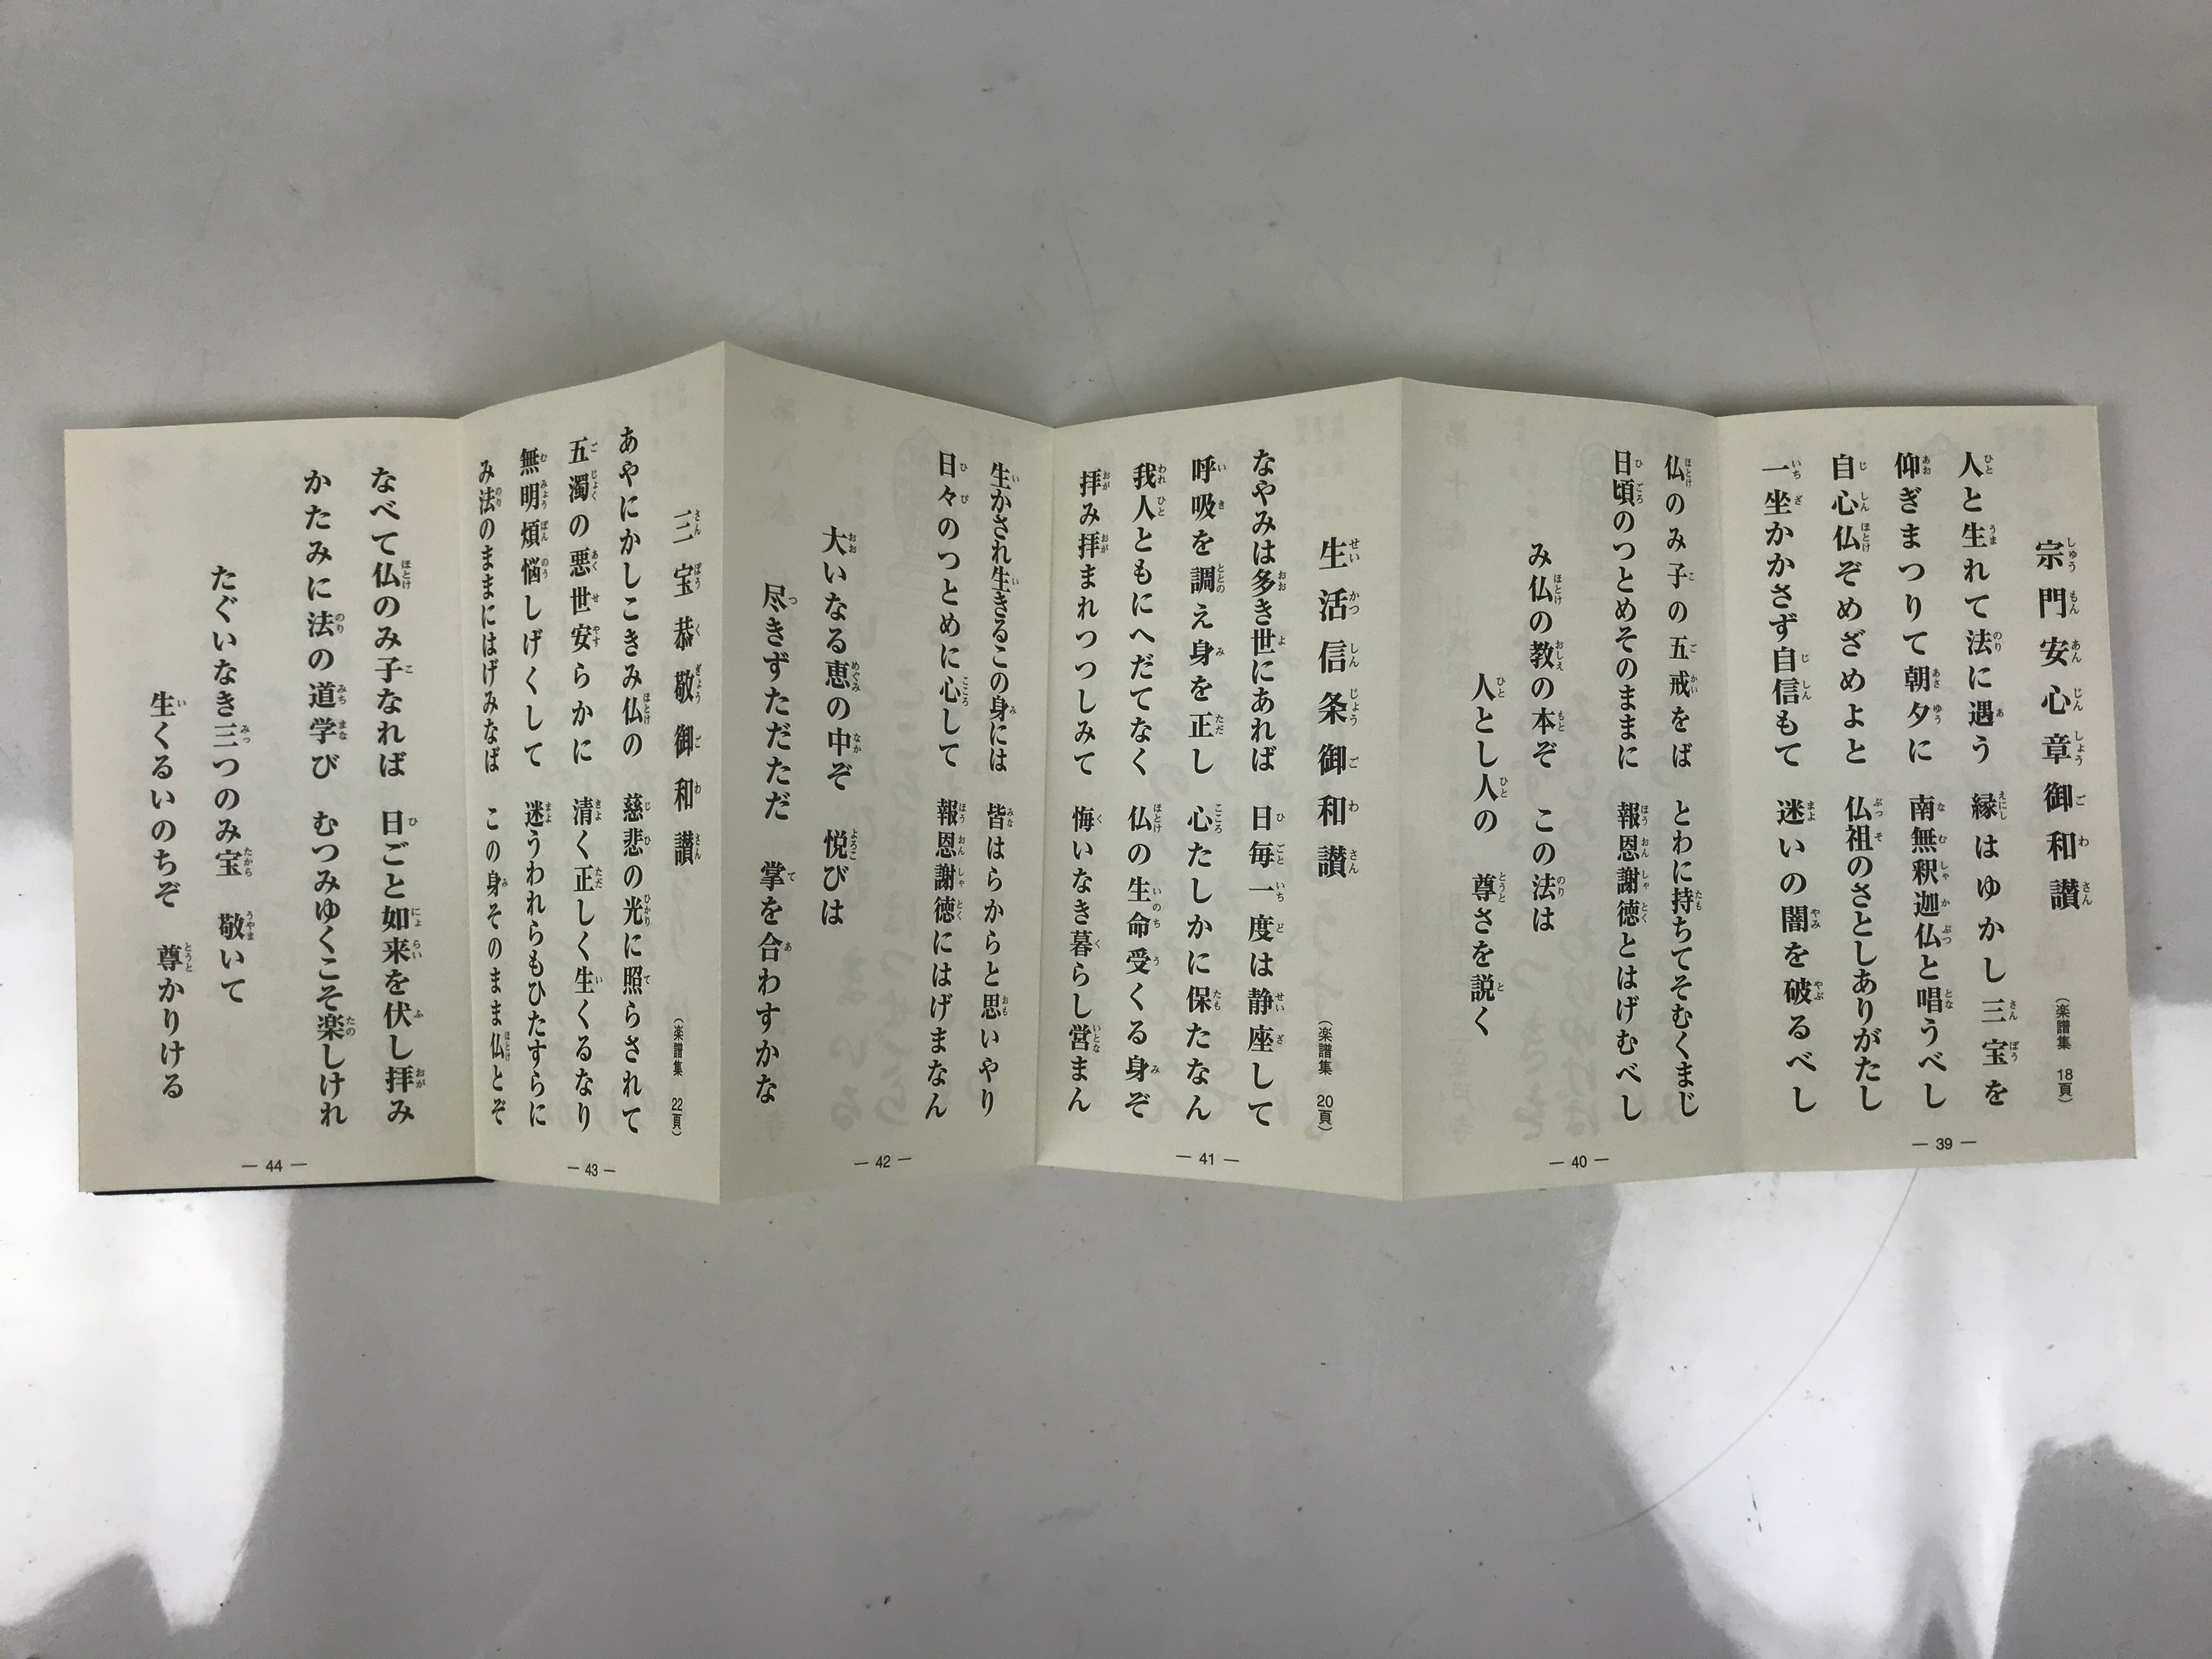 宗門安心章御和讃　（楽譜集　18頁）
人と生れて法に遇う　縁はゆかし三宝を
仰ぎまつりて朝夕に　南無釈迦仏と唱うべし
自心仏ぞめざめよと　仏祖のさとしありがたし
一坐かかさず自信もて　迷いの闇を破るべし
― 39 ―
仏のみ子の五戒をば　とわに持ちてそむくまじ
日頃のつとめそのままに　報恩謝徳とはげむべし
み仏の教の本ぞ　この法は
人とし人の　尊さを説く
― 40 ―
生活信条御和讃　（楽譜集　20頁）
なやみは多き世にあれば　日毎一度は静座して
呼吸を調え身を正し　心たしかに保たなん
我人ともにへだてなく　仏の生命受くる身ぞ
拝み拝まれつつしみて　悔いなき暮らし営まん
― 41 ―
生かされ生きるこの身には　皆はらからと思いやり
日々のつとめに心して　報恩謝徳にはげまなん
大いなる恵の中ぞ　悦びは
尽きずただただ　掌を合わすかな
― 42 ―
三宝恭敬御和讃　（楽譜集　22頁）
あやにかしこきみ仏の　慈悲の光に照らされて
五濁の悪世安らかに　清く正しく生くるなり
無明煩悩しげくして　迷うわれらもひたすらに
み法のままにはげみなば　この身そのまま仏とぞ
― 43 ―
なべて仏のみ子なれば　日ごと如来を伏し拝み
かたみに法の道学び　むつみゆくこそ楽しけれ
たぐいなき三つのみ宝　敬いて
生くるいのちぞ　尊かりける
― 44 ―